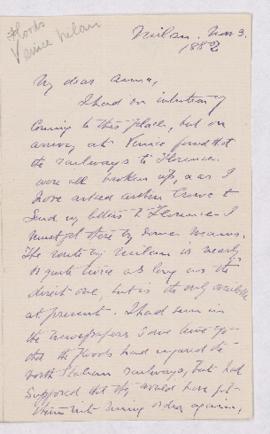 Floods
Venice Milan
Milan. Nov 3.
1882
My dear Anna,
I had no intention of
coming to this place, but on
arriving at Venice found that
the railways to Florence
were all broken up, & as I
have asked Crowe to
send my letters to Florence I
must get there by some means.
The route by Milan is nearly
if quite twice as long as the
direct one, but is the only available
at present. I had seen in
the newspapers some time ago
that the floods had injured the
north Italian railways, but had
supposed that they would have got
them into running order again,